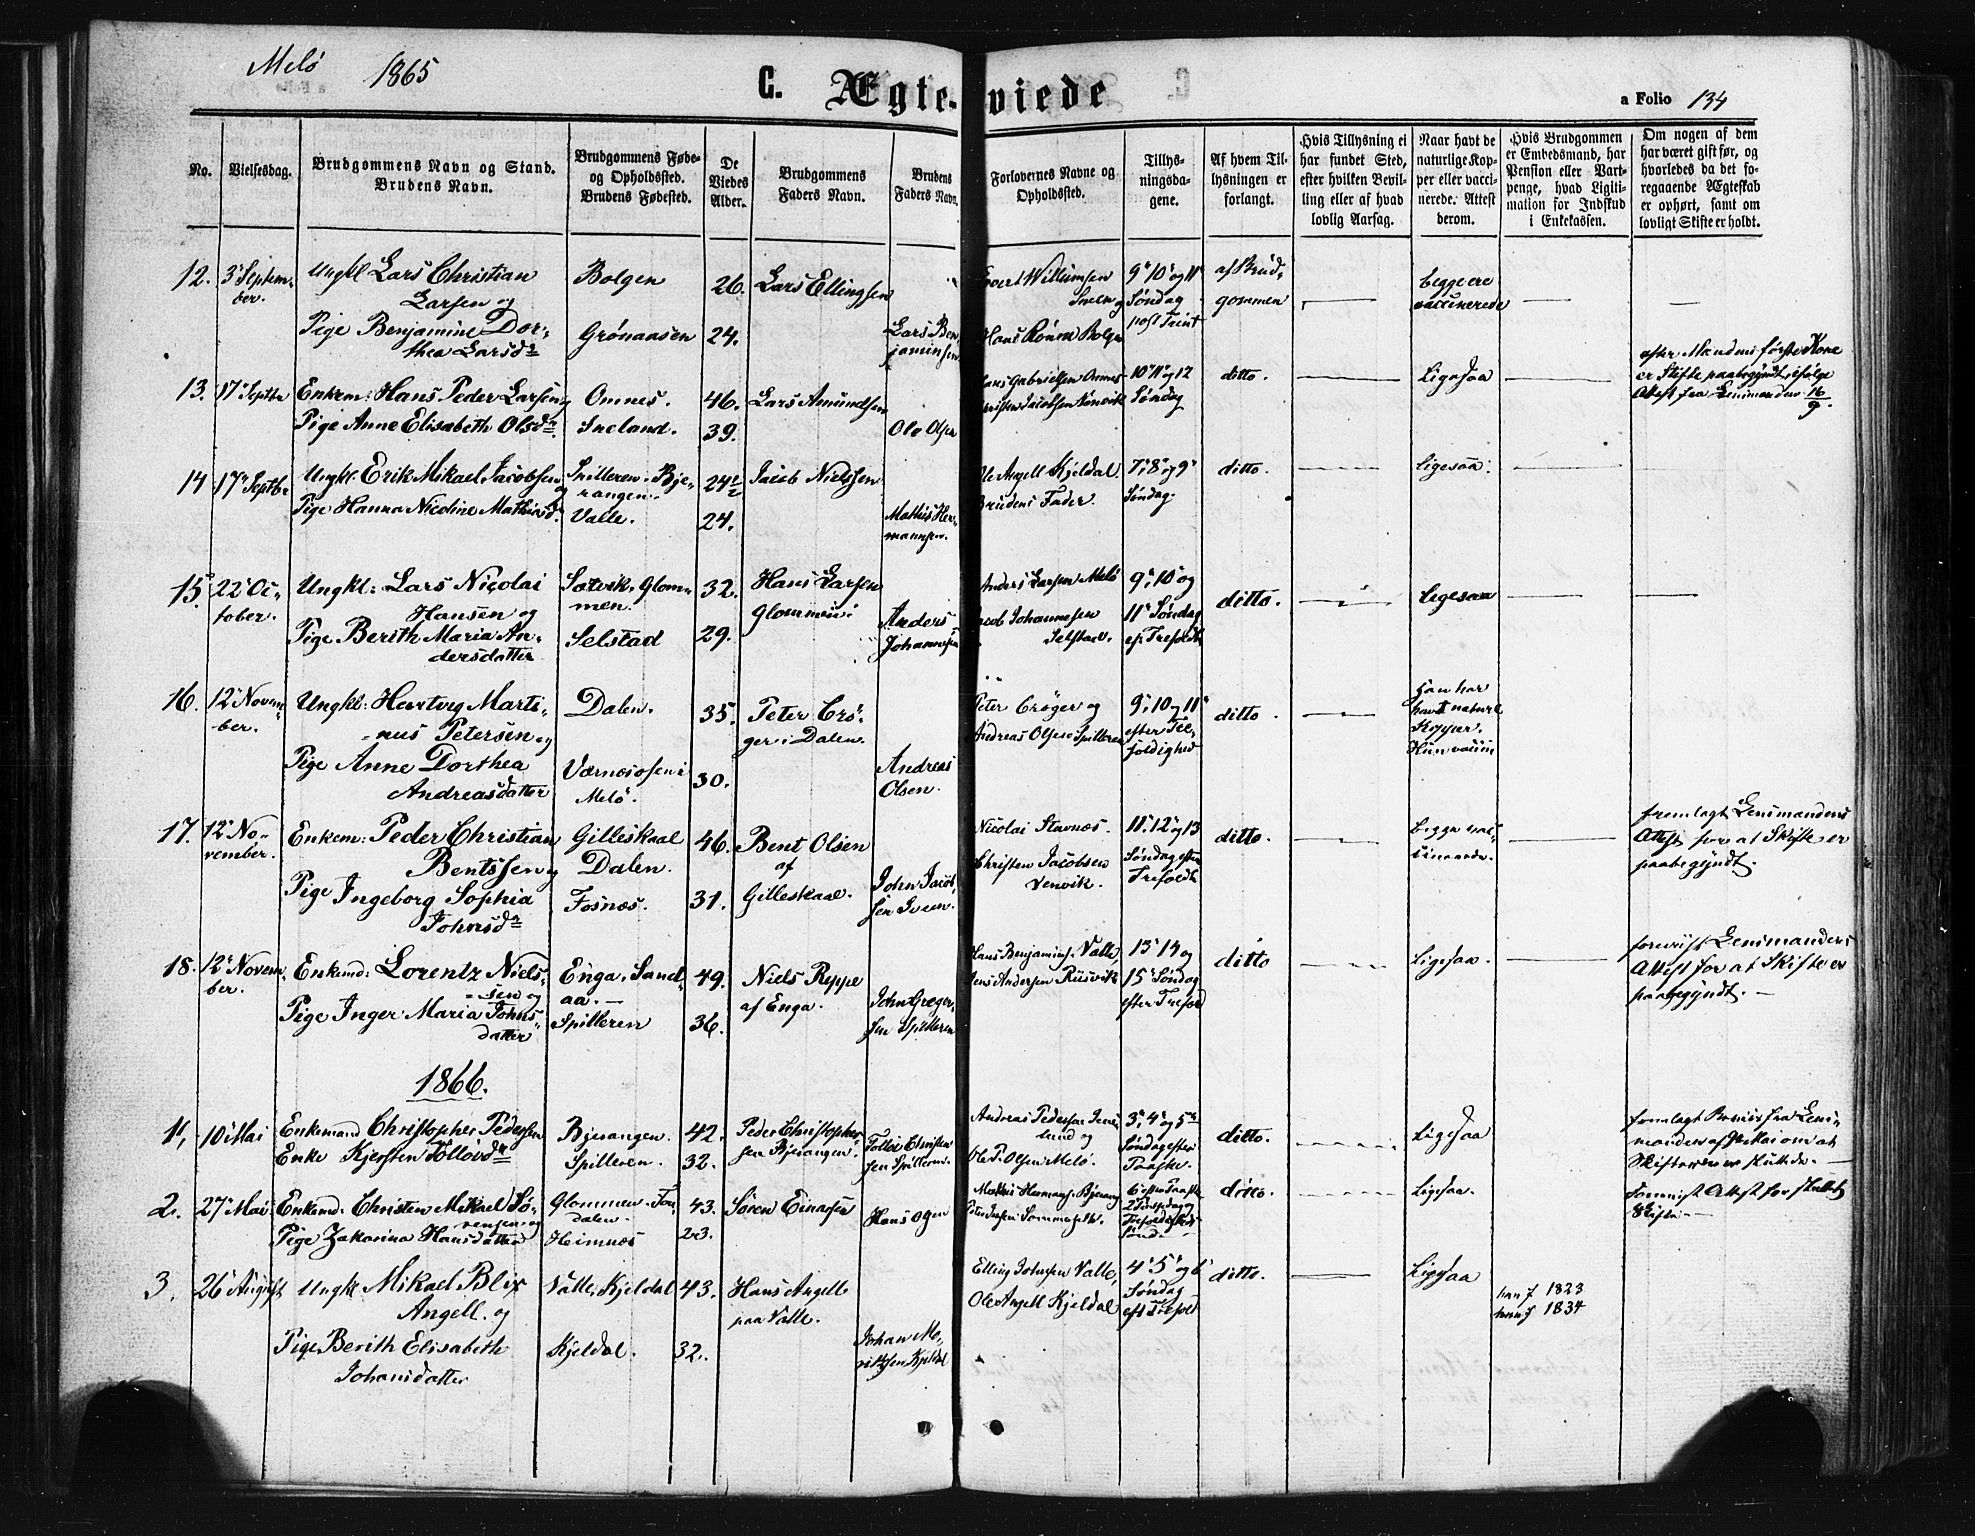 Melö 1865
C. Ægte-viede
a Folio 134
No.
Vielsesdag.
Brudgommens Navn og Stand.
Brudens Navn.
Brudgommens Føde-
og Opholdssted.
Brudens Fødested.
De
Viedes
Alder.
Brudgommens
Faders Navn.
Brudens
Faders Navn.
Forlovernes Navne og
Opholdssted.
Tillys-
ningsda-
gene.
Af hvem Til-
lysningen er
forlangt.
Hvis Tillysning ei
har fundet Sted,
efter hvilken Bevil-
ling eller af hvad
lovlig Aarsag.
Naar havt de
naturlige Kop-
per eller vacci-
nerede. Attest
derom.
Hvis Brudgommen
er Embedsmand, har
Pension eller Vart-
penge, hvad Ligiti-
mation for Indskud
i Enkekassen.
Om nogen af dem
har været gift før, og
hvorledes da det fo-
regaaende Ægteskab
er ophørt, samt om
lovligt Skifte er holdt.
12. 3' Septem-
ber.
Ungkl Lars Christian
Larsen og
Pige Benjamine Dor-
thea Larsdr
Bolgen
Grönaasen
26.
24.
Lars Ellingsen
Lars Ben-
jaminsen
Evert Willumsen
Hans Rönvik Bolgen
9' 10' og 11'
Søndag
post Trint
af Brud-
gommen
begge ere
vaccinerede
13. 17' Septbr
Enkem: Hans Peder Larsen og
Pige Anne Elisabeth Olsdr
Omnes.
Sneland.
46.
39.
Lars Amundsen
Ole Olsen
Hans Gabrielsen Omnes
Christen Jacobsen Venvik
10' 11' og 12
Søndag
ditto.
Ligesaa
efter Mandens første Kone
er Skifte paabegyndt, ifølge
Attest fra Lensmanden 16/9.
14 17' Septbr
Ungkl. Erik Mikael Jacobsen og
Pige Hanna Nicoline Mathiasdr
Spilleren. Bje-
rangen.
Valle.
24½
24.
Jacob Nielssen
Mathis Her-
mannsen.
Ole Angell Kjeldal.
Brudens Fader.
7' 8' og 9'
Søndag.
ditto.
Ligesaa.
15. 22' Oc-
tober.
Ungkl: Lars Nicolai
Hansen og
Pige Berith Maria An-
dersdatter
Sætvik. Glom-
men.
Selstad
32.
29.
Hans Larsen
Glommen.
Anders
Johannesen
Anders Larsen Melö
Jacob Johannesen
Selstad.
9', 10' og
11' Søndag
ef. Trefoldh
ditto.
ligesaa
16. 12' Novem-
ber.
Ungkl: Hertvig Marti-
nus Petersen og
Pige Anne Dorthea
Andreasdatter
Dalen.
Værnæsosen i
Melö.
35.
30.
Peter Crö-
ger i Dalen.
Andreas
Olsen.
Peter Cröger og
Andreas Olsen Spilleren
9', 10 og 11'
efter Tre-
foldighed
ditto.
han har
havt naturl
Kopper.
Hun vaccin
17. 12' No-
vember.
Enkem: Peder Christian
Bentssen og
Pige Ingeborg Sophia
Johnsdr
Gilleskaal
Dalen.
Fosnæs.
46.
31.
Bent Olsen
af
Gilleskaal.
John Jacob-
sen Sveen.
Nicolai Stavnæs.
Christen Jacobsen
Venvik.
11' 12' og 13
Søndag efter
Trefoldh
ditto.
begge vac-
cinerede.
fremlagt Lensmandens
Attest for at Skifte er
paabegyndt.
18. 12' Novem-
ber.
Enkemd: Lorentz Niels-
sen og
Pige Inger Maria Johns-
datter
Enga. Sand-
aa.
Spilleren
49.
36.
Niels Reppe
af Enga.
John Greger-
sen Spilleren
Hans Benjamins. Valle,
Jens Andersen Risvik
13' 14 og
15' Søndag
efter Trefold
ditto
Ligesaa.
forevist Lensmandens
Attest for at Skifte er
paabegyndt.
1866.
1, 10' Mai
Enkemand Christopher Pedersen
Enke Kjersten Tollevdr
Bjerangen.
Spilleren.
42.
32.
Peder Christopher-
sen Bjerangen.
Tollev Christen-
sen Spilleren.
Andreas Pedersen
og
Ole P. Olsen Melö.
3', 4' og 5te
Søndag efter
Paaske.
ditto.
Ligesaa
fremlagt Beviis fra Lens-
manden af 7' Mai om at
Skifterne ere sluttede.
2. 27' Mai
Enkemd: Christen Mikael Sö-
rensen og
Pige Zakarina Hansdatter
Glommen.
Heimnæs
43.
23.
Sören Einarsen
Mathis Hermans. Bjerang
6' efter Paaske
ditto.
Ligesaa.
Skifte
3. 26' August
Ungkl Mikael Blix
Angell. og
Pige Berith Elisabeth
Johansdatter
Valle. Kjeldal
Kjeldal.
43.
32.
Hans Angell
paa Valle.
Johan Mo-
ritzsen Kjeldal
Elling Johnsen Valle,
Ole Angell Kjeldal
4' 5' og 6'
Søndag
eft Trefold
ditto.
Ligesaa
han f. 1823
hun f. 1834